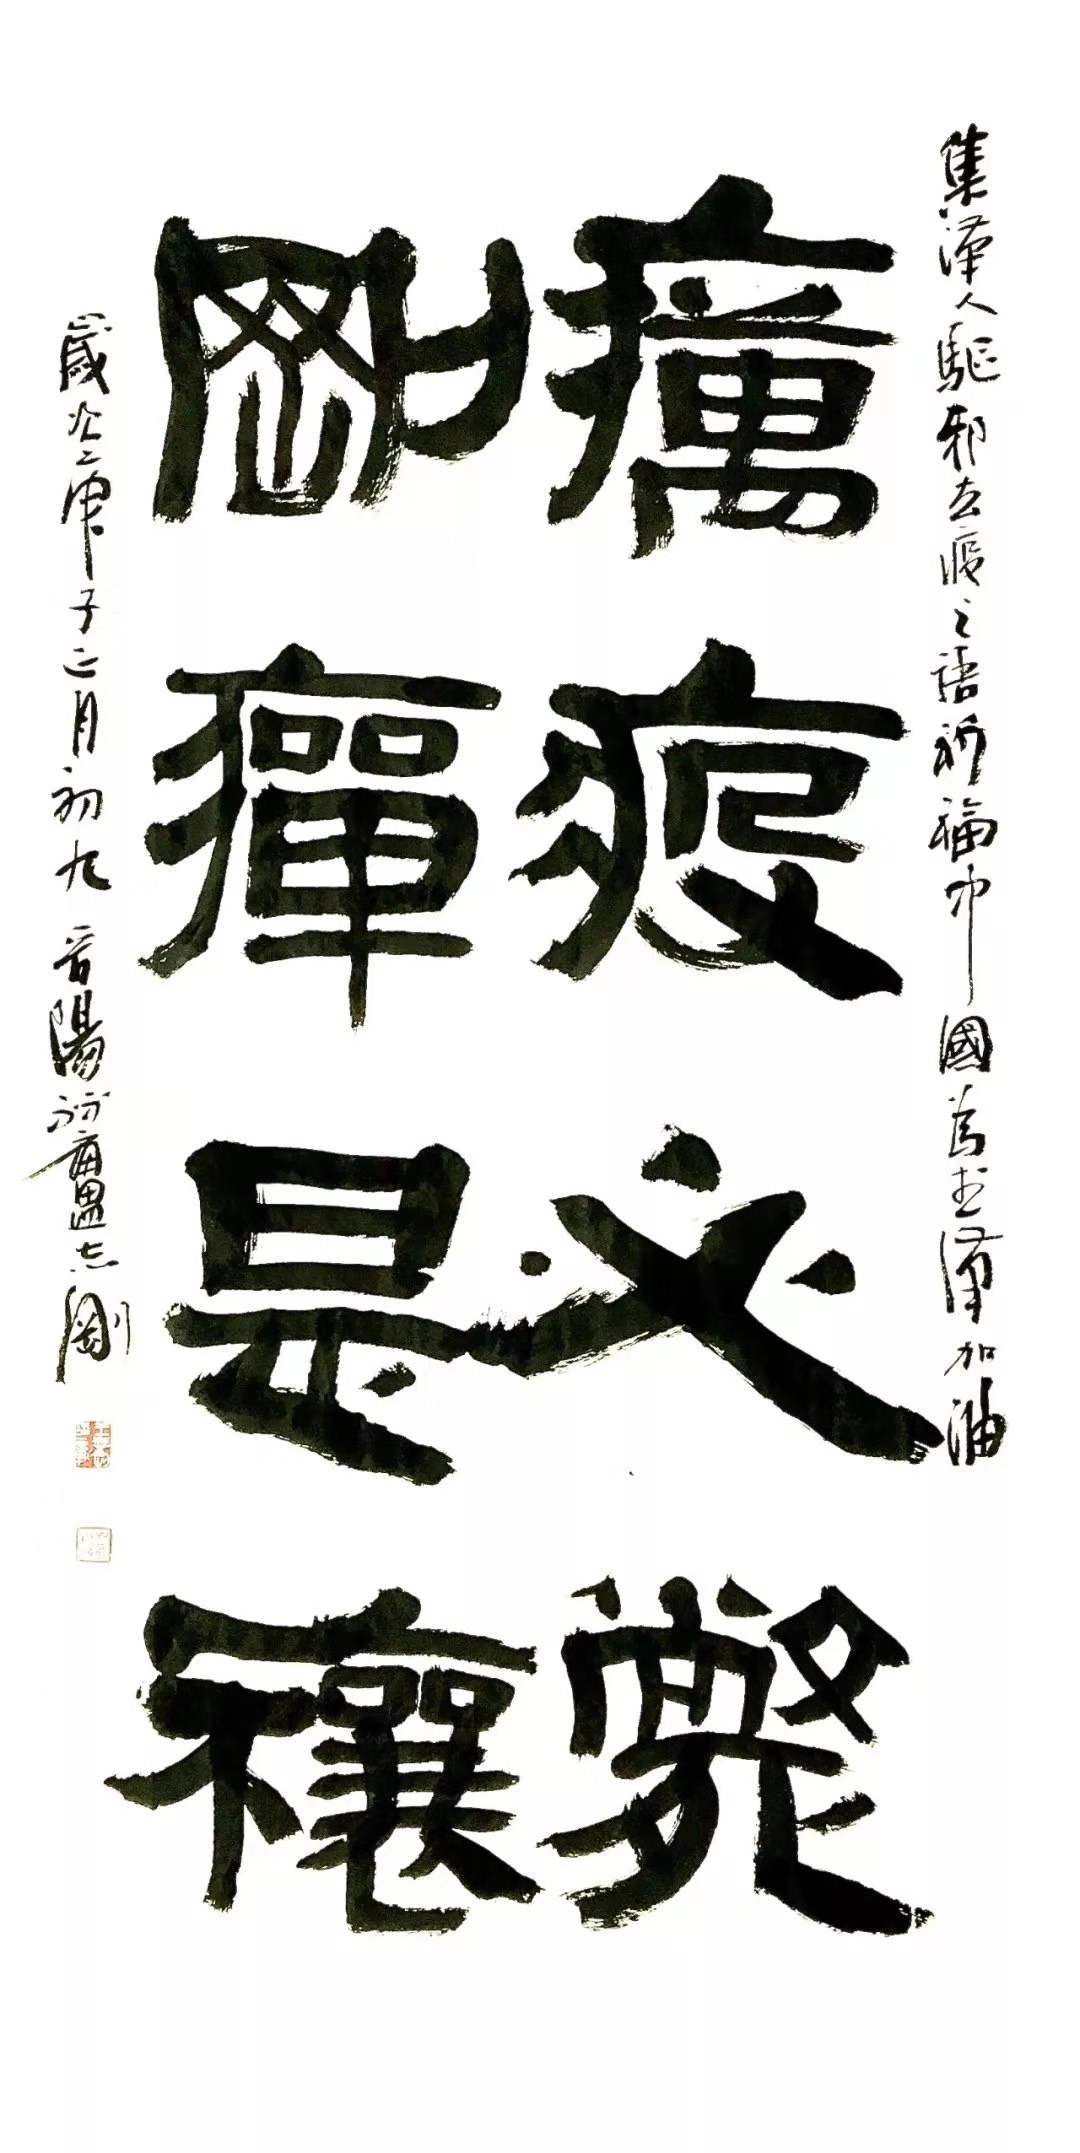 集漢人驅邪去疫之語祈福中國為武漢加油
癘疫必斃
剛癉是禳
歲次庚子正月初九晉陽志剛